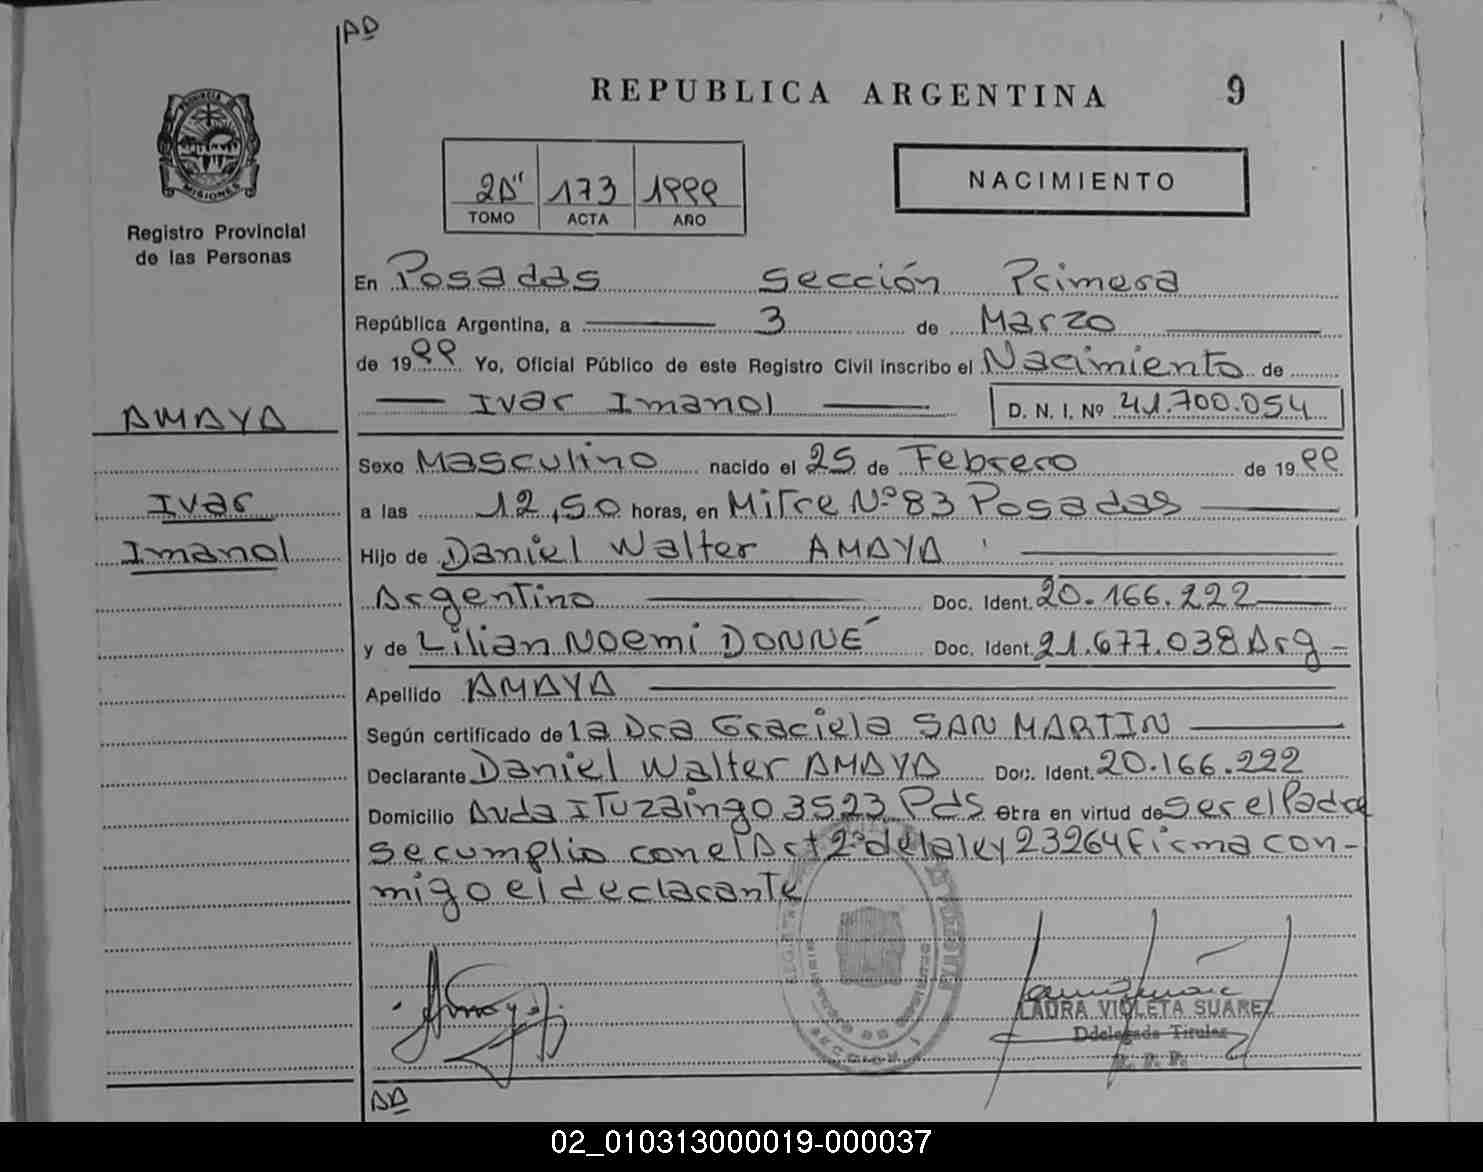 AD
REPUBLICA ARGENTINA 9
PROVINCIA DE MISIONES
Registro Provincial
de las Personas
2A" 173 1999
TOMO ACTA AÑO
NACIMIENTO
En Posadas Sección Primera
República Argentina, a 3 de Marzo
de 1999 Yo, Oficial Público de este Registro Civil inscribo el Nacimiento de
Ivar Imanol D. N. I. Nº 41.700.054
AMAYA
Ivar
Imanol
Sexo Masculino nacido el 25 de Febrero de 1999
a las 12,50 horas, en Mitre Nº 83 Posadas
Hijo de Daniel Walter AMAYA
Argentino Doc. Ident. 20.166.222
y de Lilian Noemi DONNÉ Doc. Ident. 21.677.038 Arg-
Apellido AMAYA
Según certificado de la Dra Graciela SAN MARTIN
Declarante Daniel Walter AMAYA Doc. Ident. 20.166.222
Domicilio Avda ITuzaingo 3523 Pds Obra en virtud de ser el Padre
se cumplio con el Art 2º de la ley 23264 firma con-
migo el declarante
Amaya
LAURA VIOLETA SUAREZ
Ddelegada Titular
R. P. P.
SECCION 1
AD
02_010313000019-000037